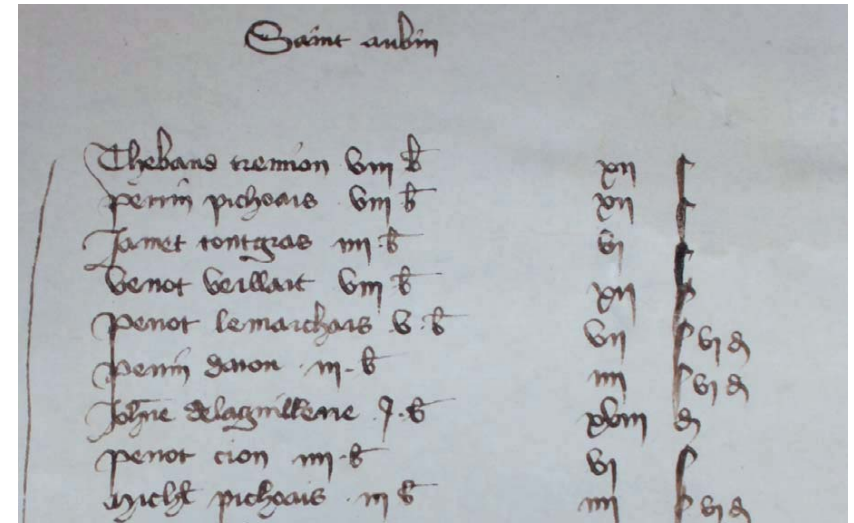 Saint aubin
Thebaud tremion viii b xii s
perrin pichoais viii b xii s
Jamet tontgras iiii b vi s
venot veillart viii b xii s
penot lemarchais v b vii s vi d
perrin daron iii b iiii s vi d
Joh͞ne delaguillerie j b xviii d
penot cion iiii b vi s
Michl pichoais iii b iiii s vi d